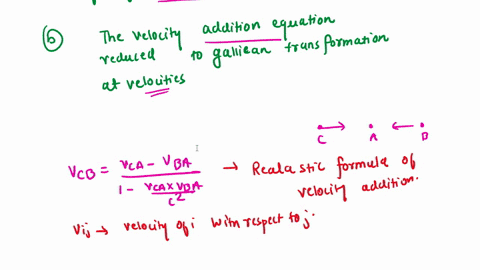 ⑥ The velocity addition equation
reduced to gallilean transformation
at velocities
C A B
VCB = VCA - VBA / 1 - VCA x VBA / c² → Realastic formula of
velocity addition.
Vij → velocity of i with respect to j.